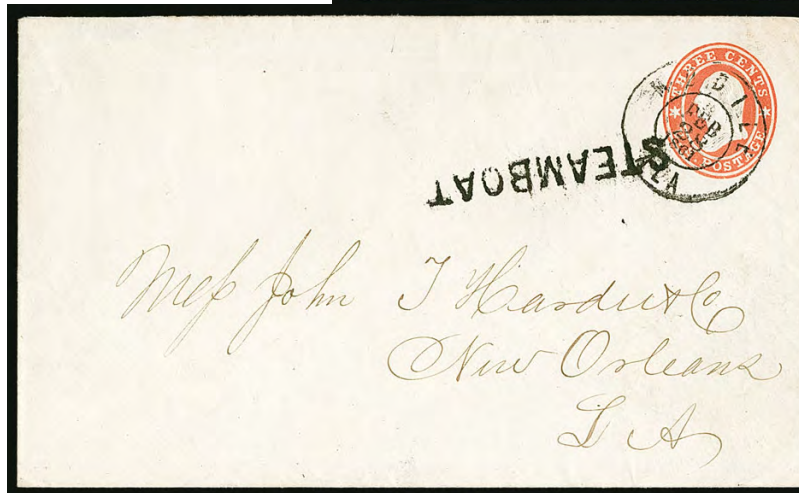 THREE CENTS
U.S. POSTAGE
FEB
28
1861
STEAMBOAT
Mess John T Hardie & Co
New Orleans
L A